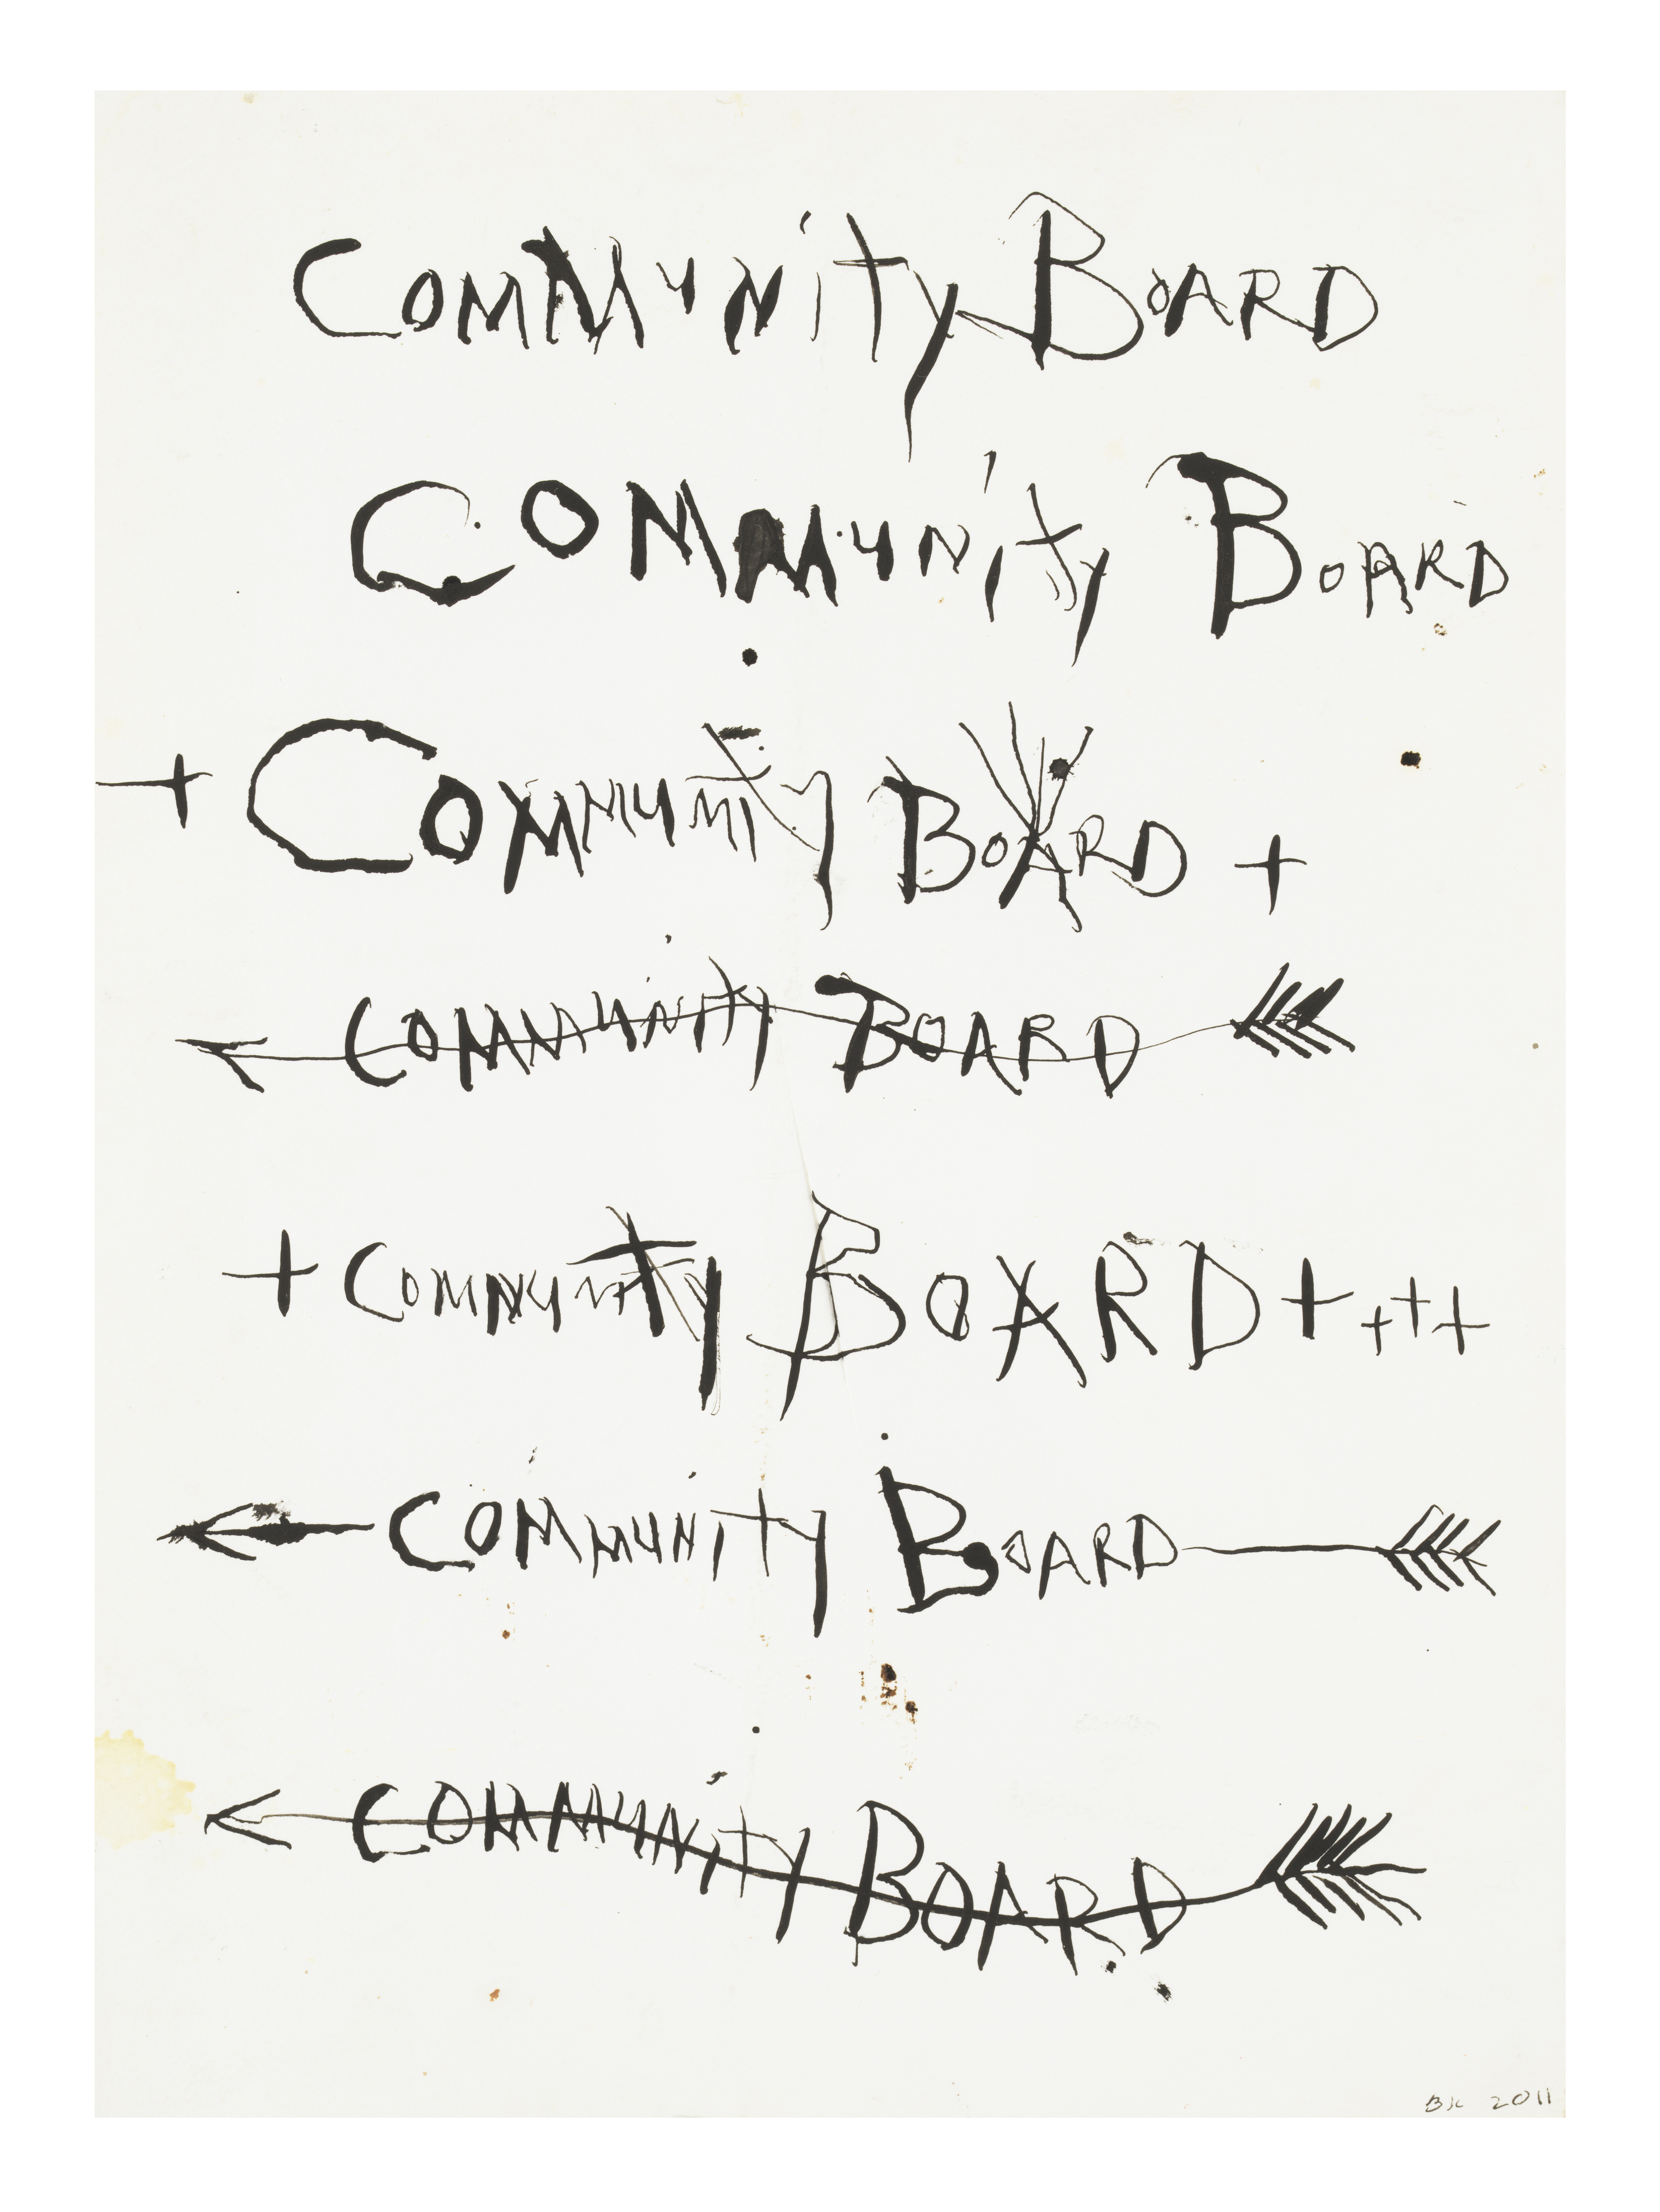 Community Board
Community Board
+ Community Board +
Community Board
+ Community Board + + + +
Community Board
Community Board
BK 2011